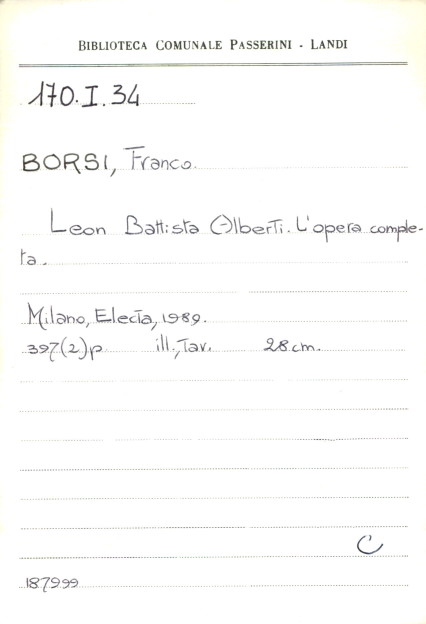 BIBLIOTECA COMUNALE PASSERINI - LANDI
170.I.34
BORSI, Franco.
Leon Battista Alberti. L'opera comple-
ta.
Milano, Electa, 1989.
397(2)p. ill., Tav. 28 cm.
C
187999